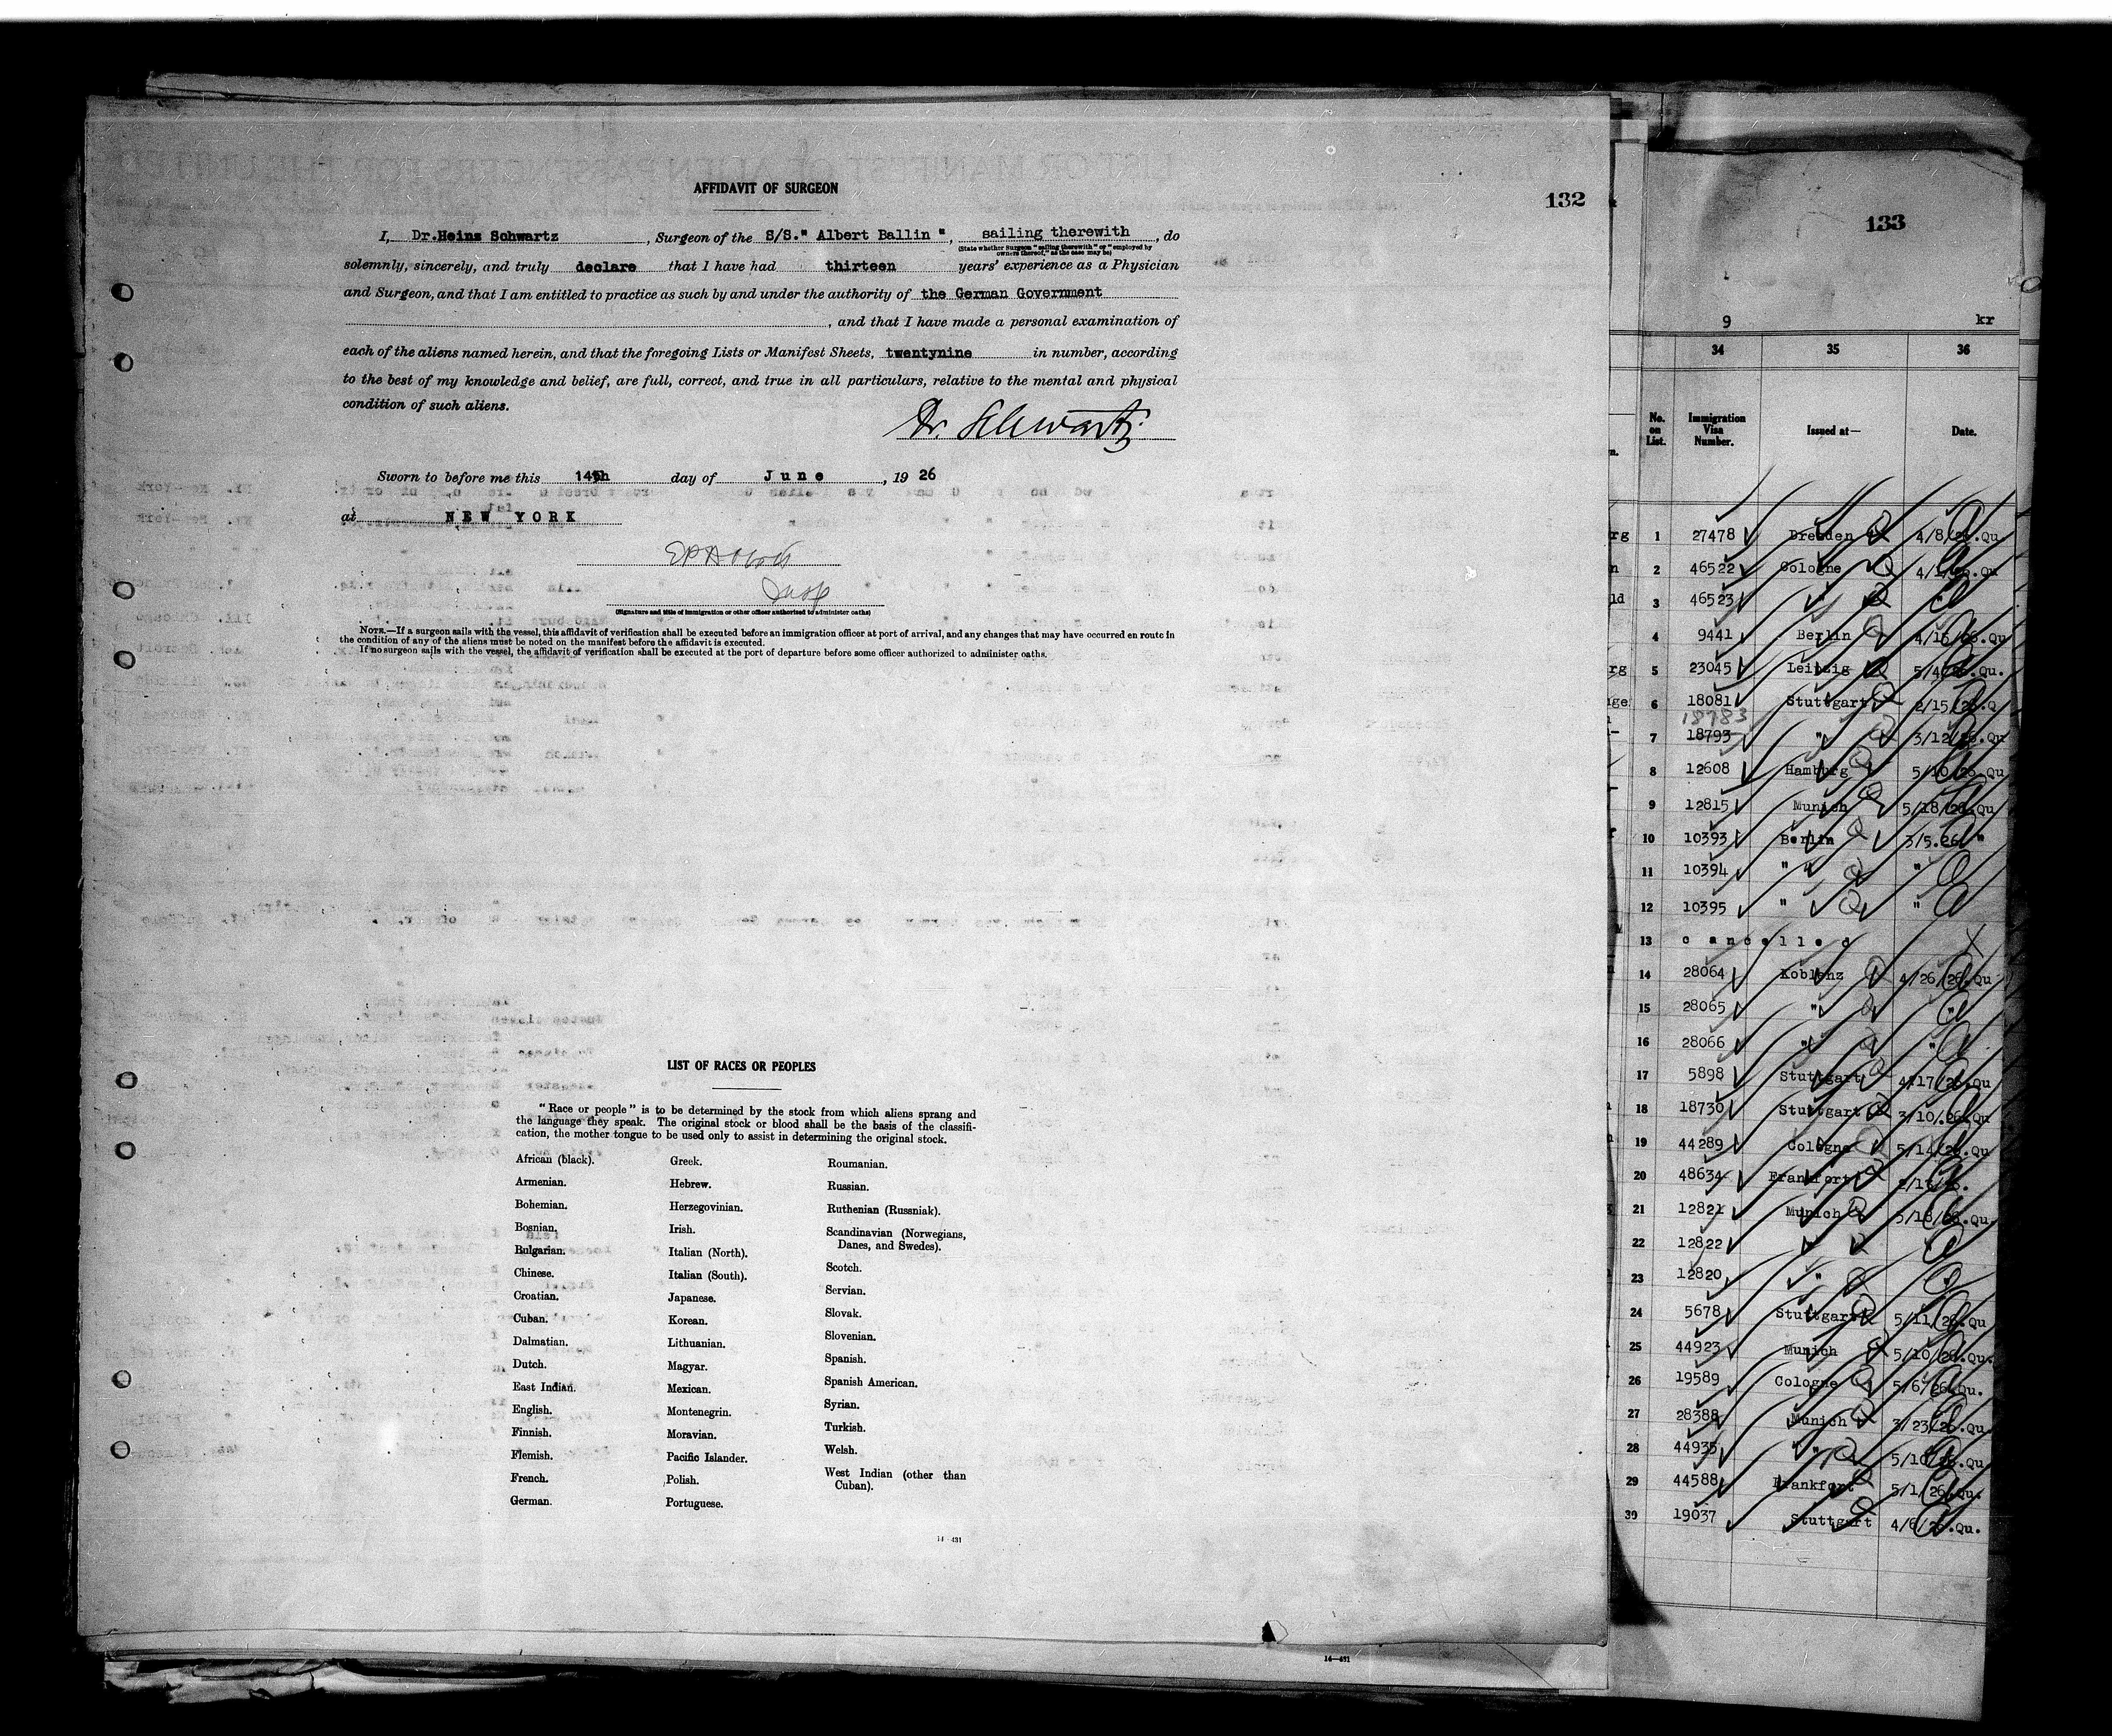 AFFIDAVIT OF SURGEON
132
I, Dr.Heinz Schwartz, Surgeon of the S/S." Albert Ballin ", sailing therewith, do
(State whether Surgeon "sailing therewith" or "employed by
owners thereof," as the case may be)
solemnly, sincerely, and truly declare that I have had thirteen years' experience as a Physician
and Surgeon, and that I am entitled to practice as such by and under the authority of the German Government
, and that I have made a personal examination of
each of the aliens named herein, and that the foregoing Lists or Manifest Sheets, twentynine in number, according
to the best of my knowledge and belief, are full, correct, and true in all particulars, relative to the mental and physical
condition of such aliens.
Dr. Schwartz
Sworn to before me this 14th day of June, 19 26
at NEW YORK
Insp
(Signature and title of immigration or other officer authorized to administer oaths)
NOTE.—If a surgeon sails with the vessel, this affidavit of verification shall be executed before an immigration officer at port of arrival, and any changes that may have occurred en route in
the condition of any of the aliens must be noted on the manifest before the affidavit is executed.
If no surgeon sails with the vessel, the affidavit of verification shall be executed at the port of departure before some officer authorized to administer oaths.
LIST OF RACES OR PEOPLES
"Race or people" is to be determined by the stock from which aliens sprang and
the language they speak. The original stock or blood shall be the basis of the classifi-
cation, the mother tongue to be used only to assist in determining the original stock.
African (black).
Armenian.
Bohemian.
Bosnian.
Bulgarian.
Chinese.
Croatian.
Cuban.
Dalmatian.
Dutch.
East Indian.
English.
Finnish.
Flemish.
French.
German.
Greek.
Hebrew.
Herzegovinian.
Irish.
Italian (North).
Italian (South).
Japanese.
Korean.
Lithuanian.
Magyar.
Mexican.
Montenegrin.
Moravian.
Pacific Islander.
Polish.
Portuguese.
Roumanian.
Russian.
Ruthenian (Russniak).
Scandinavian (Norwegians,
Danes, and Swedes).
Scotch.
Servian.
Slovak.
Slovenian.
Spanish.
Spanish American.
Syrian.
Turkish.
Welsh.
West Indian (other than
Cuban).
14—431
14—431
133
9 kr
34 35 36
No. on List. Immigration Visa Number. Issued at— Date.
rg 1 27478 Dresden 4/8/26.Qu
n 2 46522 Cologne Qu
ld 3 46523 "
4 9441 Berlin 4/16/26.Qu
rg 5 23045 Leipzig 5/4/26.Qu.
ge 6 18081 Stuttgart 2/15/26.Q
18783
7 18793 " 3/12/26.Qu
8 12608 Hamburg 5/10/26.Qu
9 12815 Munich 5/18/26.Qu
10 10393 Berlin 3/5.26. "
11 10394 " " "
12 10395 " "
13 cancelled
14 28064 Koblenz 4/26/26.Qu
15 28065 " "
16 28066 " "
17 5898 Stuttgart 4/17/26.Qu
18 18730 Stuttgart 3/10.26.Qu
19 44289 Cologne 5/14/26.Qu
20 48634 Frankfort
21 12821 Munich 5/18/26.Qu.
22 12822
23 12820 " "
24 5678 Stuttgart 5/11/26.Qu
25 44923 Munich 5/10/26.Qu.
26 19589 Cologne 5/6/26.Qu.
27 28388 Munich 3/23/26.Qu
28 44935 " " 5/10/26.Qu
29 44588 Frankfort 5/1/26.Qu.
30 19037 Stuttgart 4/6/26.Qu.